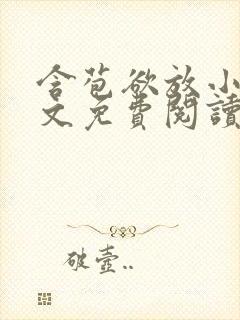 含苞欲放小
文免費閱讀
破壺..